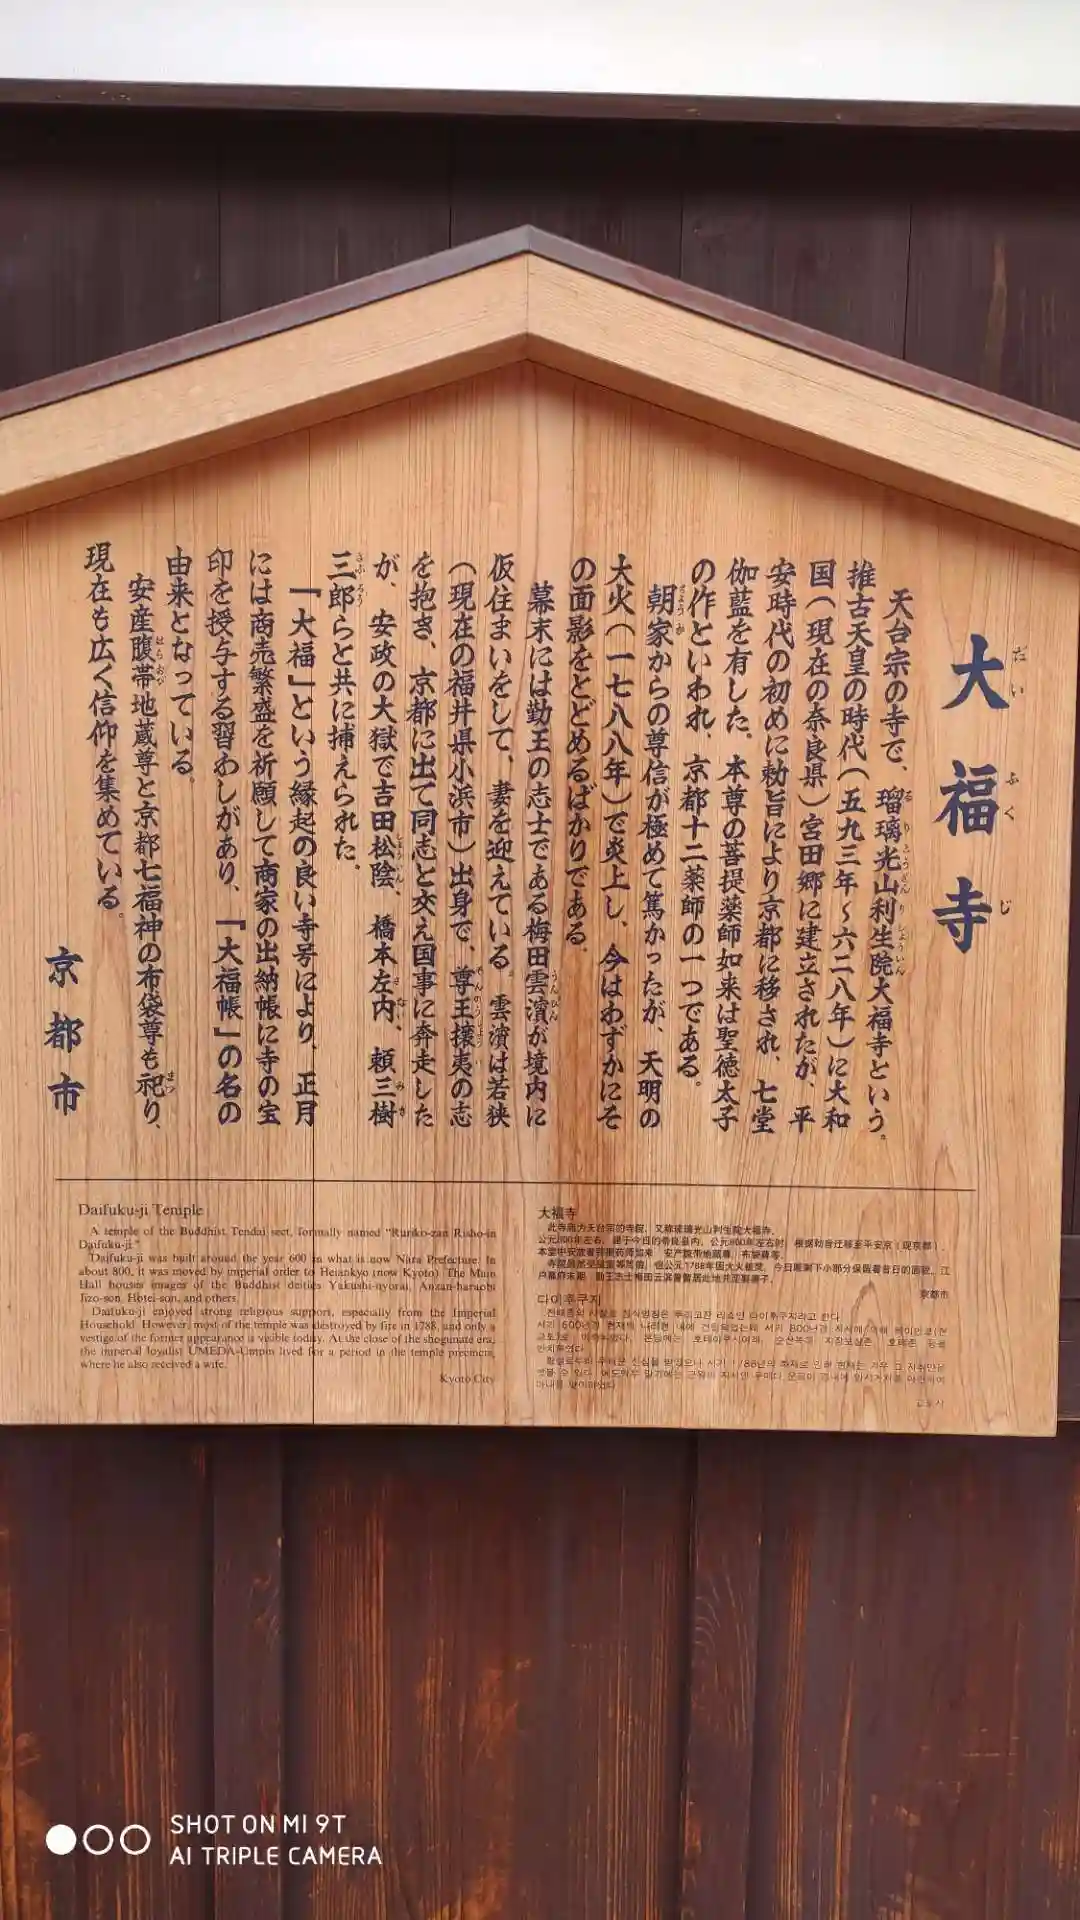 大福寺
だいふくじ
天台宗の寺で、瑠璃光山利生院大福寺という。
るりこうざんりしょういん
推古天皇の時代(五九三年~六二八年)に大和
国(現在の奈良県)宮田郷に建立されたが、平
安時代の初めに勅旨により京都に移され、七堂
伽藍を有した。本尊の菩提薬師如来は聖徳太子
の作といわれ、京都十二薬師の一つである。
朝家からの尊信が極めて篤かったが、天明の
ちょうか
大火(一七八八年)で炎上し、今はわずかにそ
の面影をとどめるばかりである。
幕末には勤王の志士である梅田雲濱が境内に
うんぴん
仮住まいをして、妻を迎えている。雲濱は若狭
(現在の福井県小浜市)出身で、尊王攘夷の志
そんのうじょうい
を抱き、京都に出て同志と交え国事に奔走した
が、安政の大獄で吉田松陰、橋本左内、頼三樹
しょういん さない みき
三郎らと共に捕えられた。
さぶろう
「大福」という縁起の良い寺号により、正月
には商売繁盛を祈願して商家の出納帳に寺の宝
印を授与する習わしがあり、「大福帳」の名の
由来となっている。
安産腹帯地蔵尊と京都七福神の布袋尊も祀り、
はらおび まつ
現在も広く信仰を集めている。
京都市
Daifuku-ji Temple
A temple of the Buddhist Tendai sect, formally named "Ruriko-zan Risho-in
Daifuku-ji."
Daifuku-ji was built around the year 600 in what is now Nara Prefecture. In
about 800, it was moved by imperial order to Heiankyo (now Kyoto). The Main
Hall houses images of the Buddhist deities Yakushi-nyorai, Anzan-haraobi
Jizo-son, Hotei-son, and others.
Daifuku-ji enjoyed strong religious support, especially from the Imperial
Household. However, most of the temple was destroyed by fire in 1788, and only a
vestige of the former appearance is visible today. At the close of the shogunate era,
the imperial loyalist UMEDA-Umpin lived for a period in the temple precincts,
where he also received a wife.
Kyoto City
大福寺
此寺庙为天台宗的寺院，又称琉璃光山利生院大福寺。
公元600年左右，建于今日的奈良县内，公元800年左右时，根据敕旨迁移至平安京（现京都）。
京都市
다이후쿠지
교토시
SHOT ON MI 9T
AI TRIPLE CAMERA